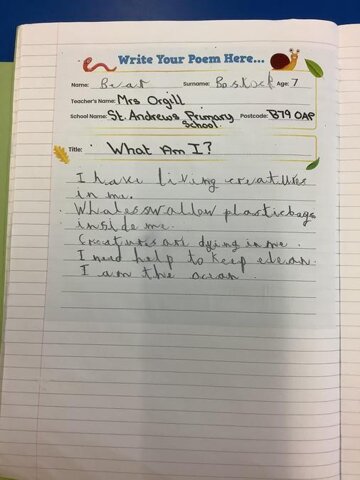 Write Your Poem Here...
Name: Bear Surname: Bostock Age: 7
Teacher's Name: Mrs Orgill
School Name: St. Andrews Primary School Postcode: B79 0AP
Title: What Am I?
I have living creatures
in me.
Whales swallow plastic bags
inside me.
Creatures are dying in me.
I need help to keep clean.
I am the ocean.